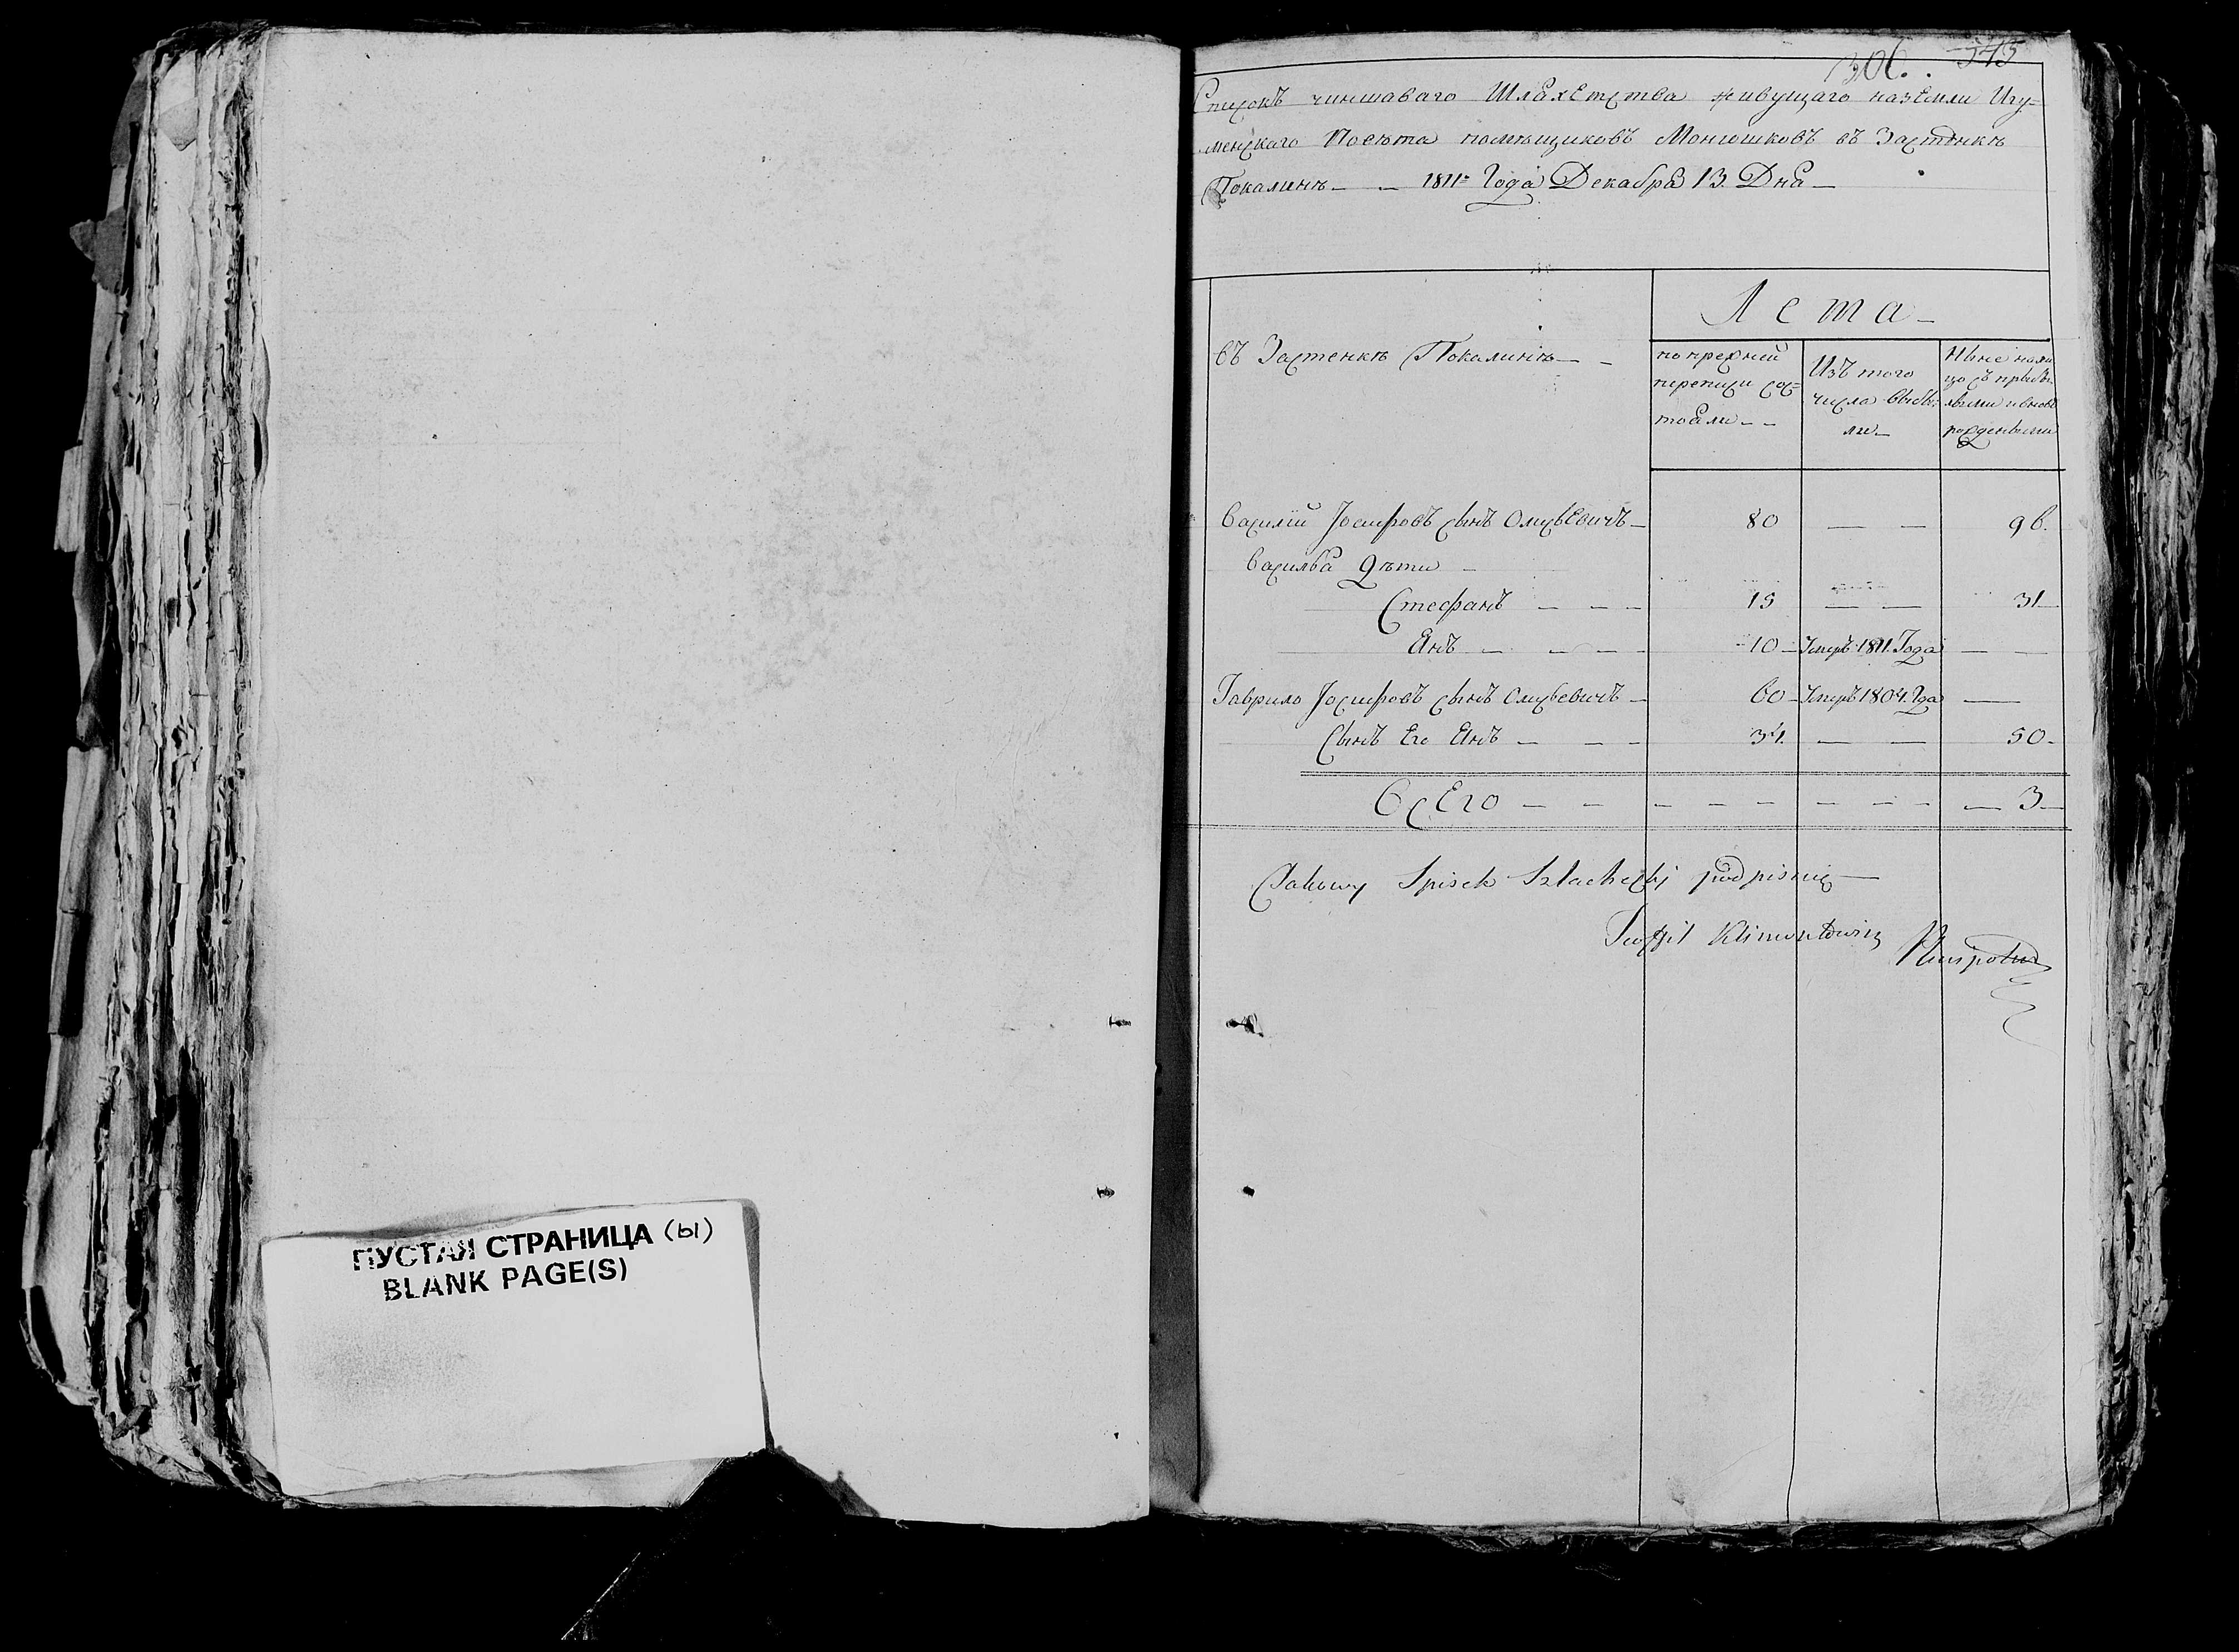 ПУСТАЯ СТРАНИЦА (ы)
BLANK PAGE(S)
306. 345
Списокъ чиншаваго Шляхетства живущаго наземли Игу=
менскаго Повѣта помѣщиковъ Монюшковъ въ Застѣнкѣ
Покалинѣ — — 1811= Года Декабря 13. Дня —
Лета —
въ Застенкѣ Покалинѣ — —
попрежней
перепизи сос=
тояли — —
Изъ того
числа выбы=
ли —
Ныне нали
цо съ прибы
лыми ивновь
рожденными
Василій Іосифовъ сынъ Олисѣевичъ — 80 — — 96.
Василья Дѣти —
Стефанъ — — — 15 — — 31
Янъ — — — 10 — Умеръ 1811. Года — —
Гаврило Іосифовъ сынъ Олисѣевичъ — 60 — Умеръ 1804. Года —
Сынъ Его Янъ — — — 34. — — 50.
Всего — — — — — — — — — 3 —
Takowy Spisek Szlachecki podpisuię —
Teoffil Klimontowicz